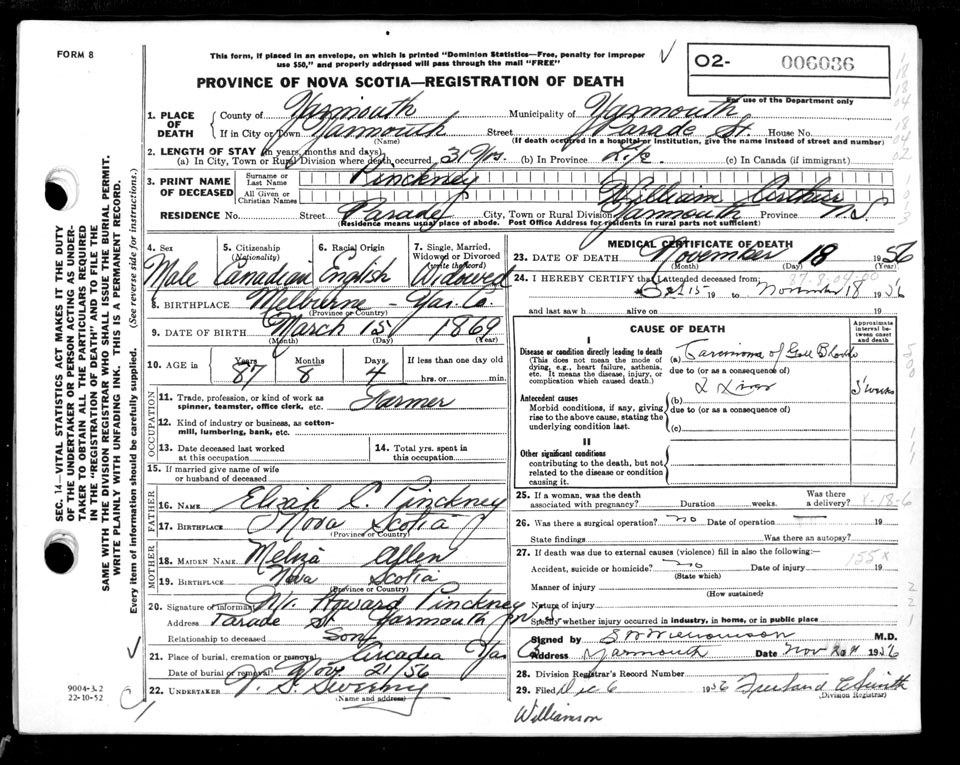 FORM 8
This form, if placed in an envelope, on which is printed "Dominion Statistics—Free, penalty for improper
use $50," and properly addressed will pass through the mail "FREE"
O2- 006036
For use of the Department only
PROVINCE OF NOVA SCOTIA—REGISTRATION OF DEATH
1. PLACE OF DEATH
County of Yarmouth Municipality of Yarmouth
If in City or Town Yarmouth Street Parade St. House No.
(Name) (If death occurred in a hospital or institution, give the name instead of street and number)
2. LENGTH OF STAY (in years, months and days)
(a) In City, Town or Rural Division where death occurred 31 Yrs. (b) In Province Life (c) In Canada (if immigrant)
3. PRINT NAME OF DECEASED
Surname or Last Name Pinckney
All Given or Christian Names William Arthur
RESIDENCE No. Street Parade City, Town or Rural Division Yarmouth Province N.S.
(Residence means usual place of abode. Post Office Address for residents in rural parts not sufficient)
4. Sex 5. Citizenship (Nationality) 6. Racial Origin 7. Single, Married, Widowed or Divorced (write the word)
Male Canadian English Widowed
8. BIRTHPLACE Melbourne - Yar. Co.
(Province or Country)
9. DATE OF BIRTH March 15 1869
(Month) (Day) (Year)
10. AGE in Years Months Days If less than one day old
87 8 4 hrs. or min.
OCCUPATION
11. Trade, profession, or kind of work as spinner, teamster, office clerk, etc. Farmer
12. Kind of industry or business, as cotton-mill, lumbering, bank, etc.
13. Date deceased last worked at this occupation
14. Total yrs. spent in this occupation
15. If married give name of wife or husband of deceased
FATHER
16. NAME Elizah C. Pinckney
17. BIRTHPLACE Nova Scotia
(Province or Country)
MOTHER
18. MAIDEN NAME Allen
19. BIRTHPLACE Nova Scotia
(Province or Country)
20. Signature of informant Mr. Howard Pinckney
Address Parade St Yarmouth N.S.
Relationship to deceased Son
21. Place of burial, cremation or removal Arcadia Yar. Co.
Date of burial or removal Nov. 21/56
22. UNDERTAKER V. S. Sweeny
(Name and address)
MEDICAL CERTIFICATE OF DEATH
23. DATE OF DEATH November 18 1956
(Month) (Day) (Year)
24. I HEREBY CERTIFY that I attended deceased from:
Oct 15 19 to November 18 1956
and last saw h alive on 19
CAUSE OF DEATH
Approximate interval between onset and death
I
Disease or condition directly leading to death
(This does not mean the mode of dying, e.g., heart failure, asthenia, etc. It means the disease, injury, or complication which caused death.)
(a) Carcinoma of Gall Bladder
due to (or as a consequence of)
& Liver 5 weeks
Antecedent causes
Morbid conditions, if any, giving rise to the above cause, stating the underlying condition last.
(b)
due to (or as a consequence of)
(c)
II
Other significant conditions
contributing to the death, but not related to the disease or condition causing it.
25. If a woman, was the death associated with pregnancy? Duration weeks. Was there a delivery?
26. Was there a surgical operation? no Date of operation 19
State findings Was there an autopsy?
27. If death was due to external causes (violence) fill in also the following:—
Accident, suicide or homicide? no Date of injury 19
(State which)
155 x
Manner of injury
(How sustained)
Nature of injury
Specify whether injury occurred in industry, in home, or in public place
Signed by S W Williamson M.D.
Address Yarmouth Date Nov 20 1956
28. Division Registrar's Record Number
29. Filed Dec 6 1956 Freeland E Smith
(Division Registrar)
Williamson
SEC. 14—VITAL STATISTICS MAKES IT THE DUTY
OF THE UNDERTAKER OR PERSON ACTING AS UNDER-
TAKER TO OBTAIN ALL THE PARTICULARS REQUIRED
IN THE "REGISTRATION OF DEATH" AND TO FILE THE
SAME WITH THE DIVISION REGISTRAR WHO SHALL ISSUE THE BURIAL PERMIT.
WRITE PLAINLY WITH UNFADING INK. THIS IS A PERMANENT RECORD.
Every item of information should be carefully supplied. (See reverse side for instructions.)
9004-3.2
22-10-52